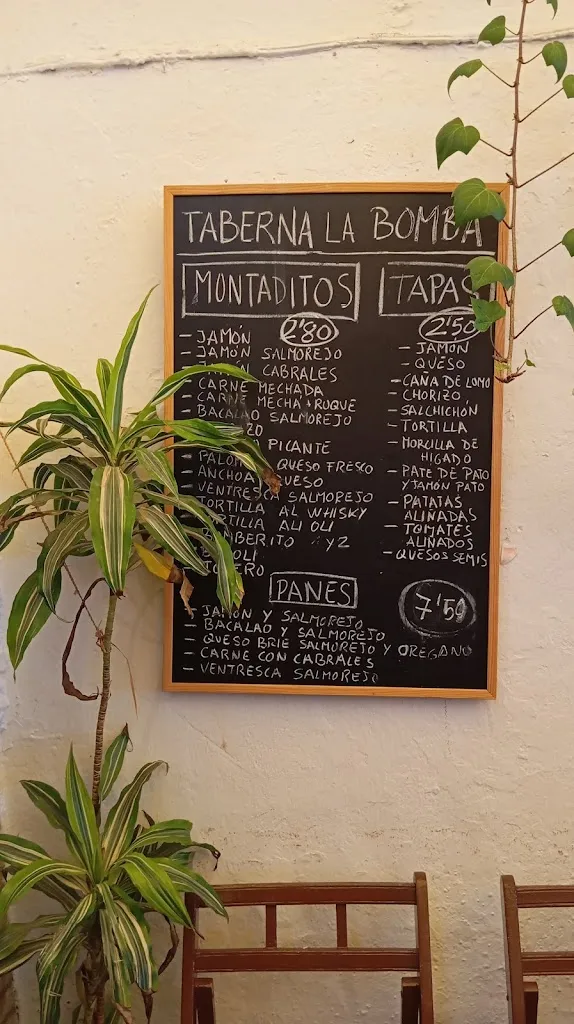 TABERNA LA BOMBA
MONTADITOS
2'80
- JAMÓN
- JAMÓN SALMOREJO
CABRALES
- CARNE MECHADA
- CARNE MECHA+RUQUE
- BACALAO SALMOREJO
PICANTE
QUESO FRESCO
QUESO
- VENTRESCA SALMOREJO
TORTILLA AL WHISKY
ALI OLI
TAPAS
2'50
- JAMÓN
- QUESO
- CAÑA DE LOMO
- CHORIZO
- SALCHICHÓN
- TORTILLA
- MORCILLA DE
HIGADO
- PATE DE PATO
Y JAMÓN PATO
- PATATAS
ALIÑADAS
- TOMATES
ALIÑADOS
- QUESOS SEMIS
PANES
7'50
- JAMÓN Y SALMOREJO
- BACALAO Y SALMOREJO
- QUESO BRIE SALMOREJO Y OREGANO
- CARNE CON CABRALES
- VENTRESCA SALMOREJO